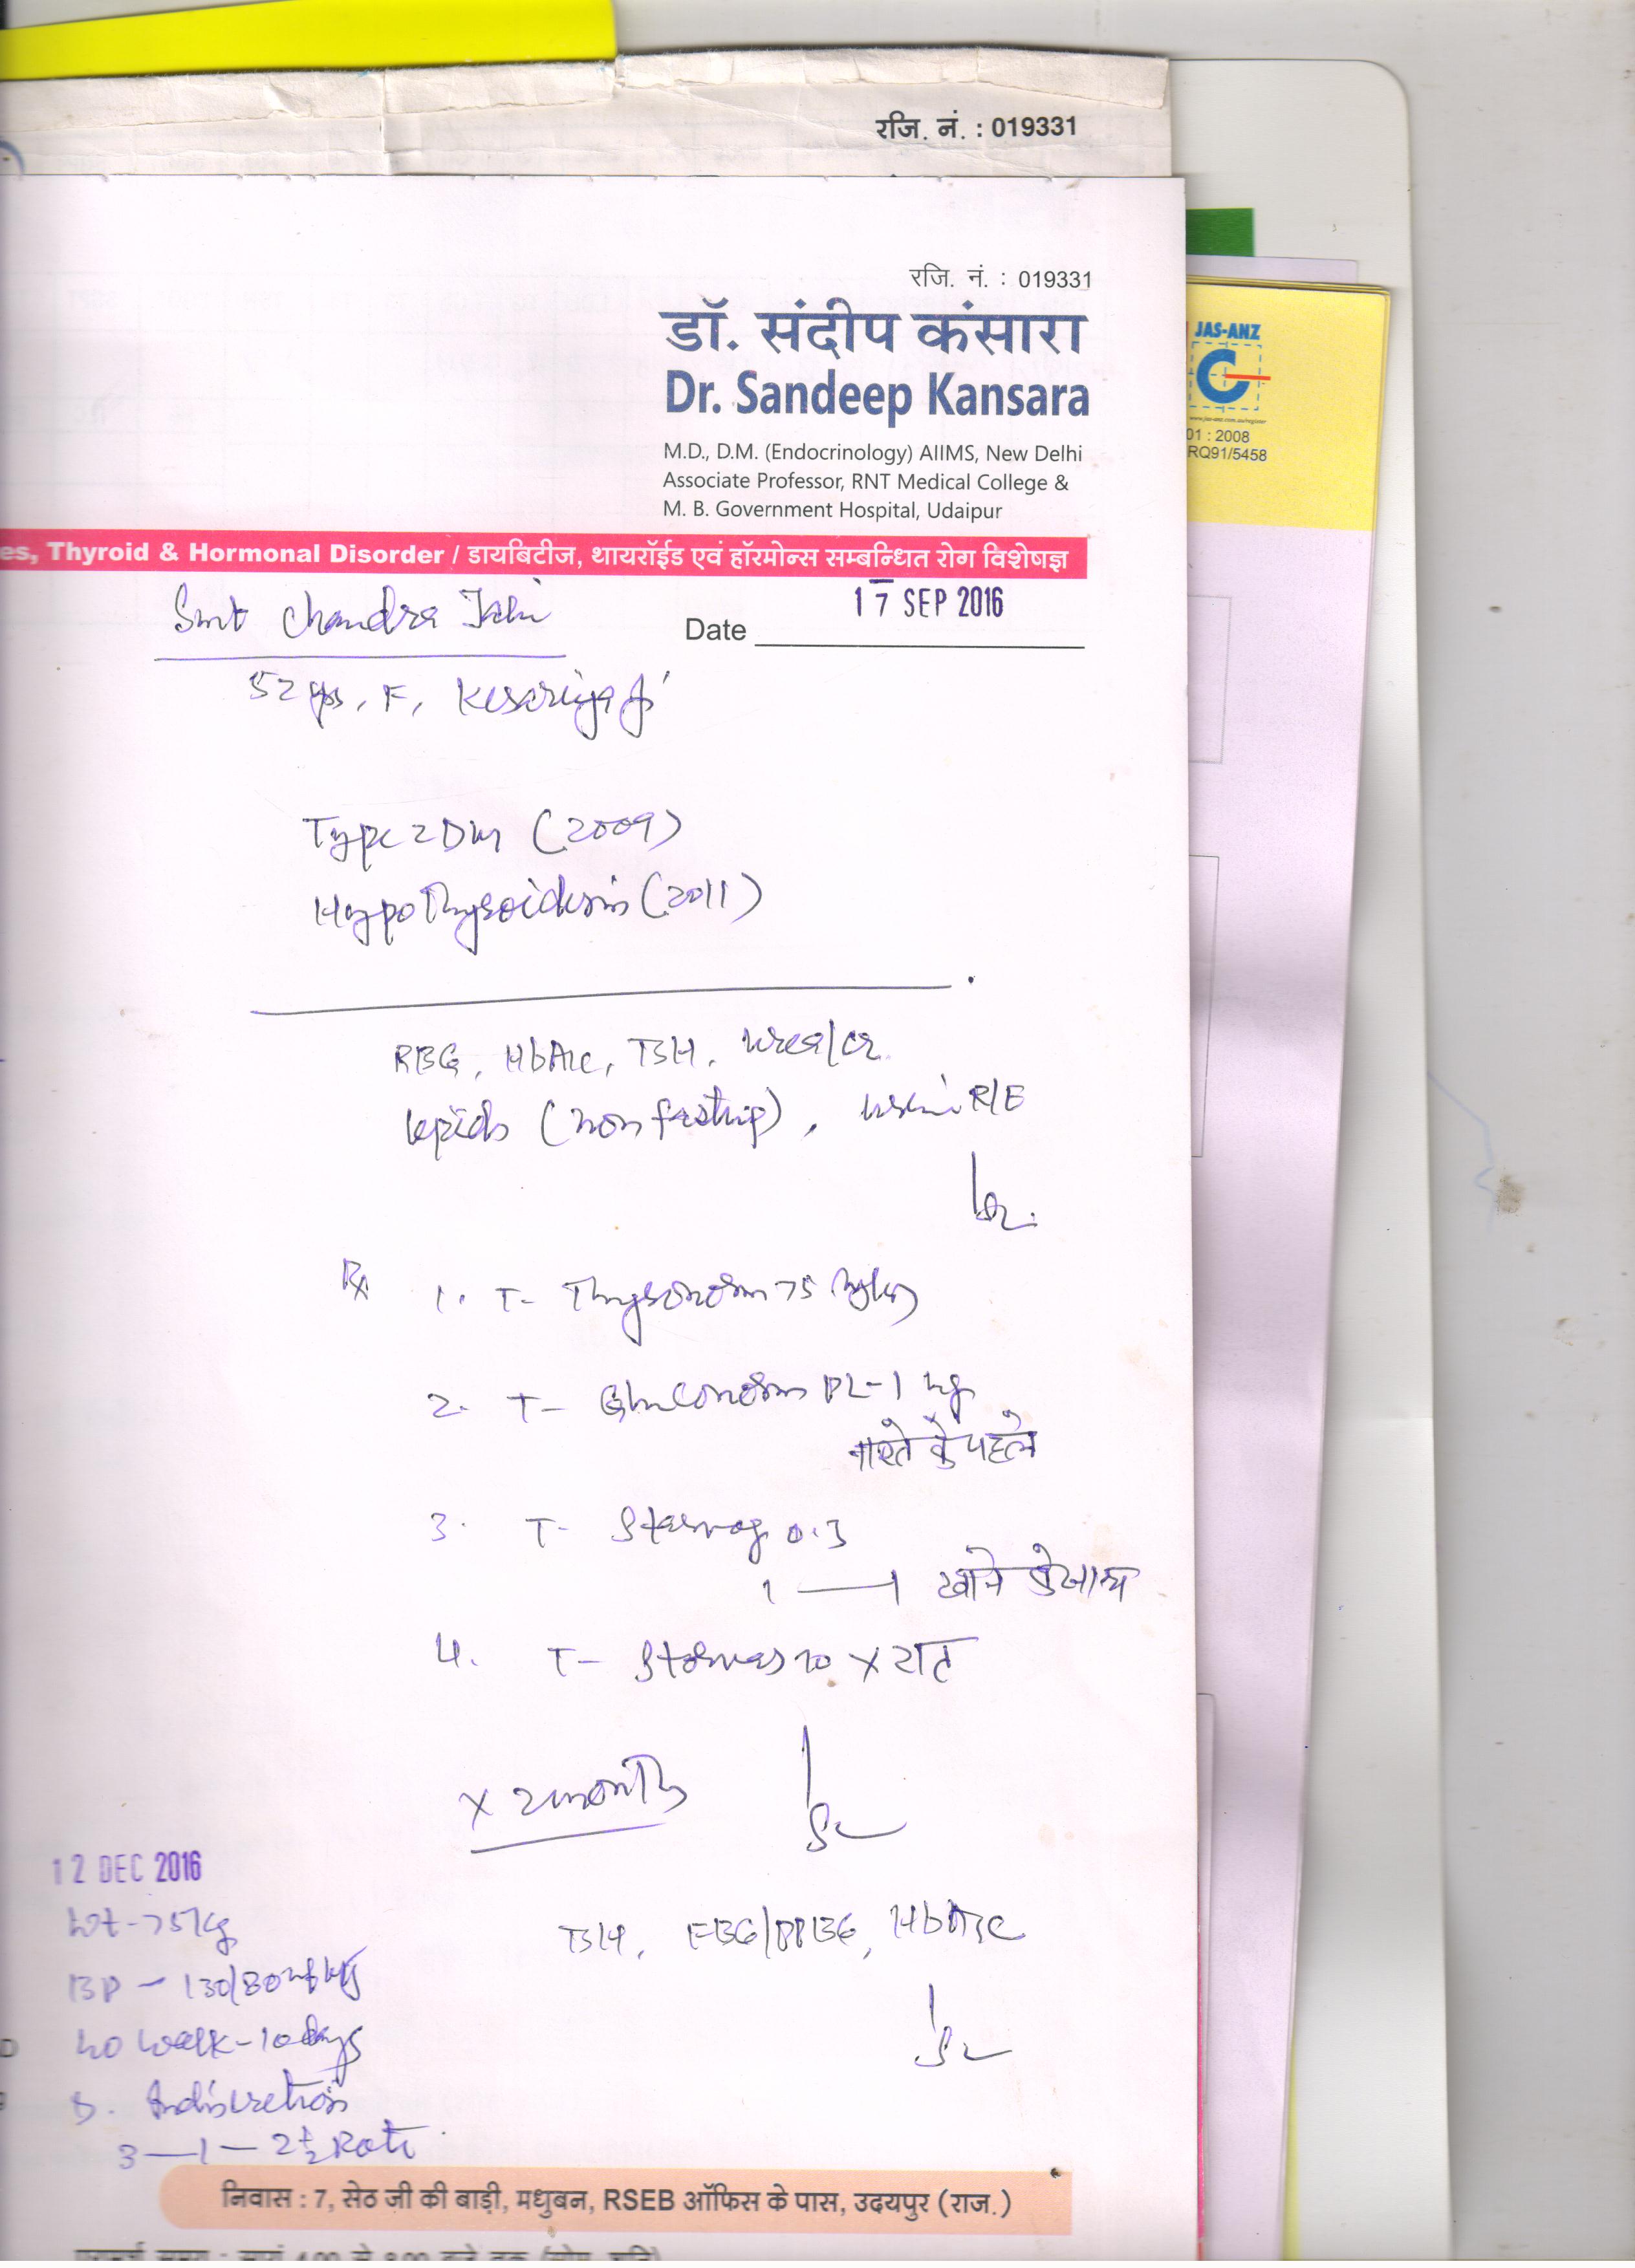 रजि. नं. : 019331
रजि. नं. : 019331
डॉ. संदीप कंसारा
Dr. Sandeep Kansara
M.D., D.M. (Endocrinology) AIIMS, New Delhi
Associate Professor, RNT Medical College &
M. B. Government Hospital, Udaipur
JAS-ANZ
01 : 2008
RQ91/5458
es, Thyroid & Hormonal Disorder / डायबिटीज, थायरॉईड एवं हॉरमोन्स सम्बन्धित रोग विशेषज्ञ
17 SEP 2016
Date
Smt Chandra
52 yrs, F, Kesariyaji
Type 2 DM (2009)
Hypothyroidism (2011)
RBG, HbA1c, TSH, urea/cr
lipids (non fasting), urine R/E
Rx
1. T- Thyronorm 75
2. T- Gluconorm PL-1 mg
नाश्ते के पहले
3. T- 0.3
1 — 1 खाने के साथ
4. T- Stormas 10 x रात
x 2 months
TSH, FBG/PPBG, HbA1c
12 DEC 2016
Wt - 75 kg
BP - 130/80 mmHg
No walk - 10 days
D. Indiscretion
3 — 1 — 2½ Roti
निवास : 7, सेठ जी की बाड़ी, मधुबन, RSEB ऑफिस के पास, उदयपुर (राज.)